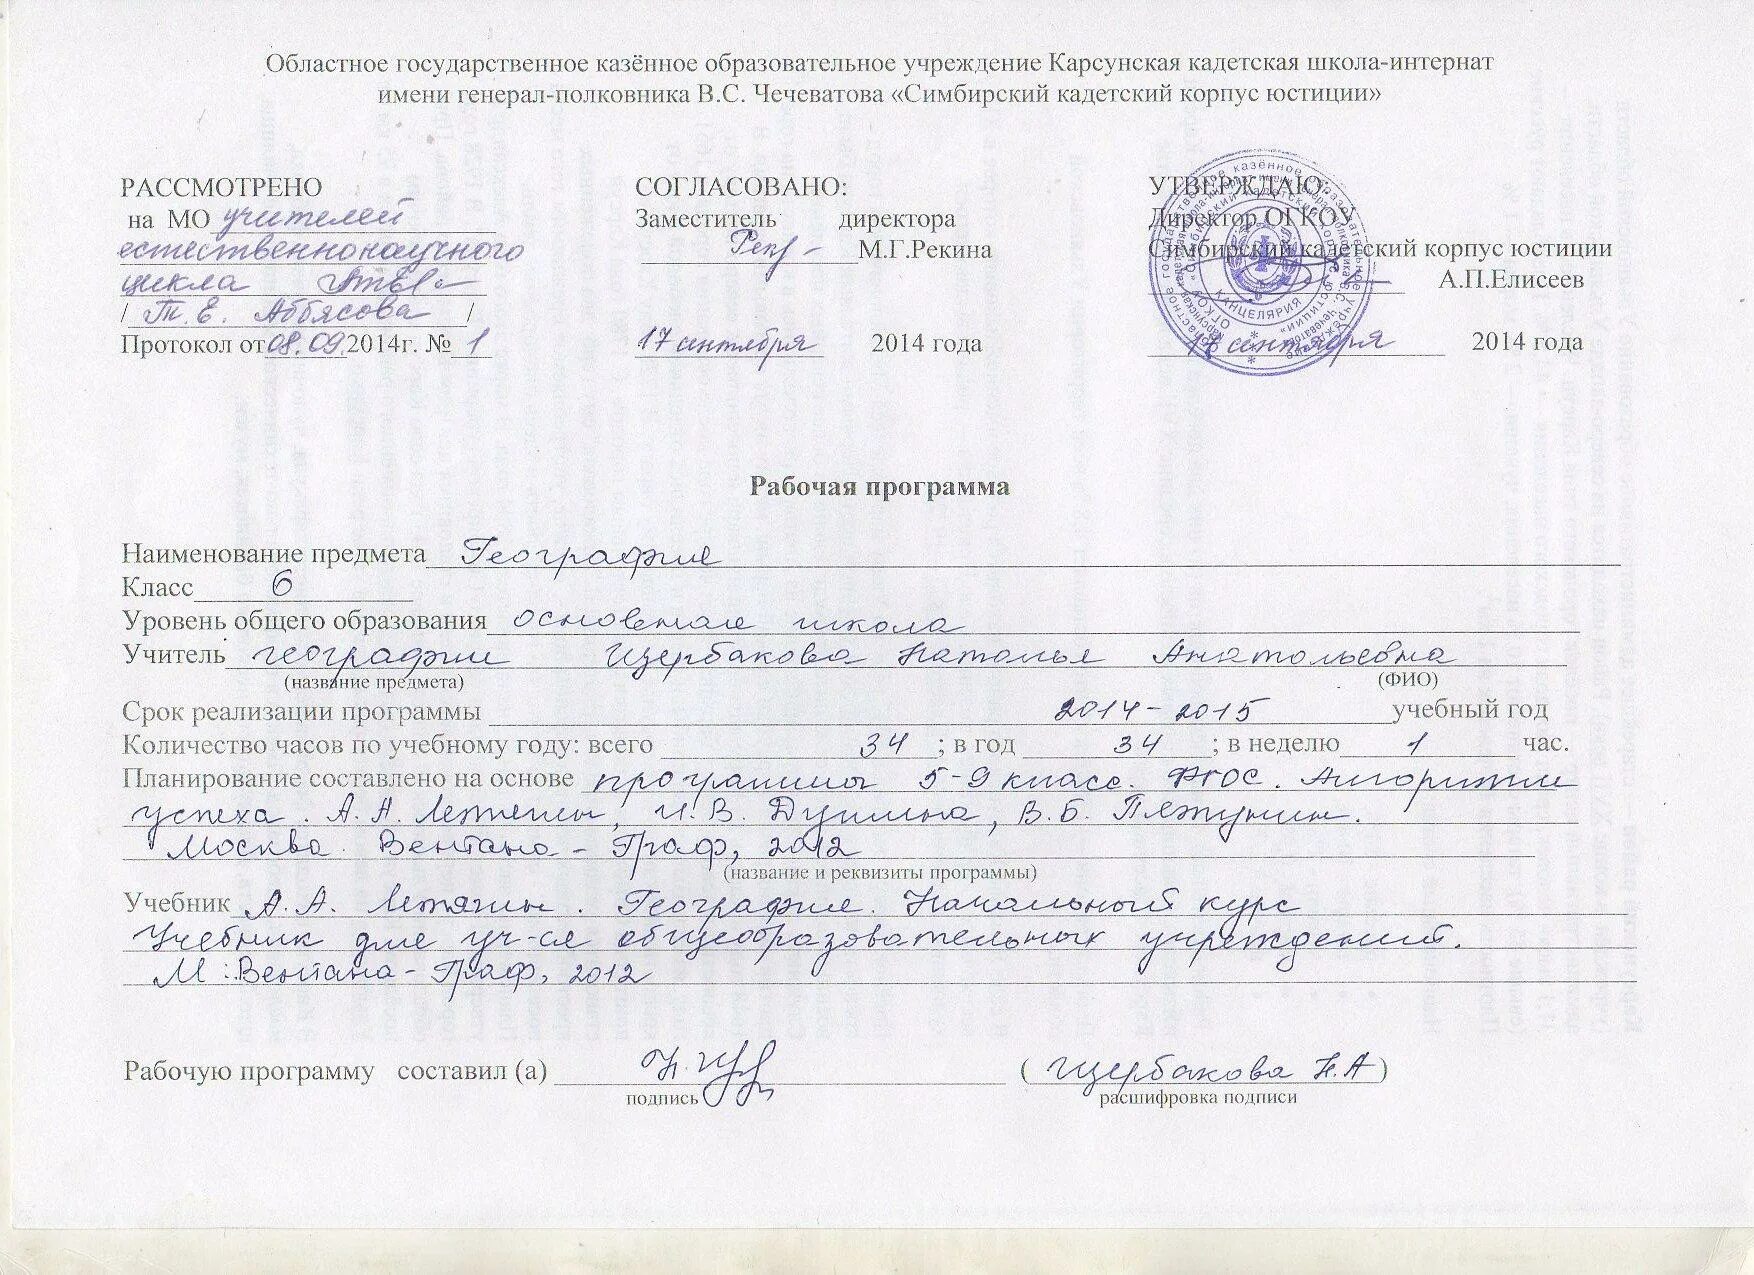 Областное государственное казённое образовательное учреждение Карсунская кадетская школа-интернат
имени генерал-полковника В.С. Чечеватова «Симбирский кадетский корпус юстиции»
РАССМОТРЕНО
на МО учителей
естественнонаучного
цикла
/ Т.Е. Аббясова /
Протокол от 08.09.2014г. № 1
СОГЛАСОВАНО:
Заместитель директора
М.Г.Рекина
17 сентября 2014 года
УТВЕРЖДАЮ:
Директор ОГКОУ
Симбирский кадетский корпус юстиции
А.П.Елисеев
17 сентября 2014 года
КАНЦЕЛЯРИЯ
Рабочая программа
Наименование предмета География
Класс 6
Уровень общего образования основная школа
Учитель географии Щербакова Наталья Анатольевна
(название предмета) (ФИО)
Срок реализации программы 2014-2015 учебный год
Количество часов по учебному году: всего 34; в год 34; в неделю 1 час.
Планирование составлено на основе программы 5-9 класс. ФГОС. Алгоритм
успеха. А.А. Летягин, И.В. Душина, В.Б. Пятунин.
Москва. Вентана-Граф, 2012
(название и реквизиты программы)
Учебник А.А. Летягин. География. Начальный курс
Учебник для уч-ся общеобразовательных учреждений.
М.:Вентана-Граф, 2012
Рабочую программу составил (а) (Щербакова Н.А)
подпись расшифровка подписи